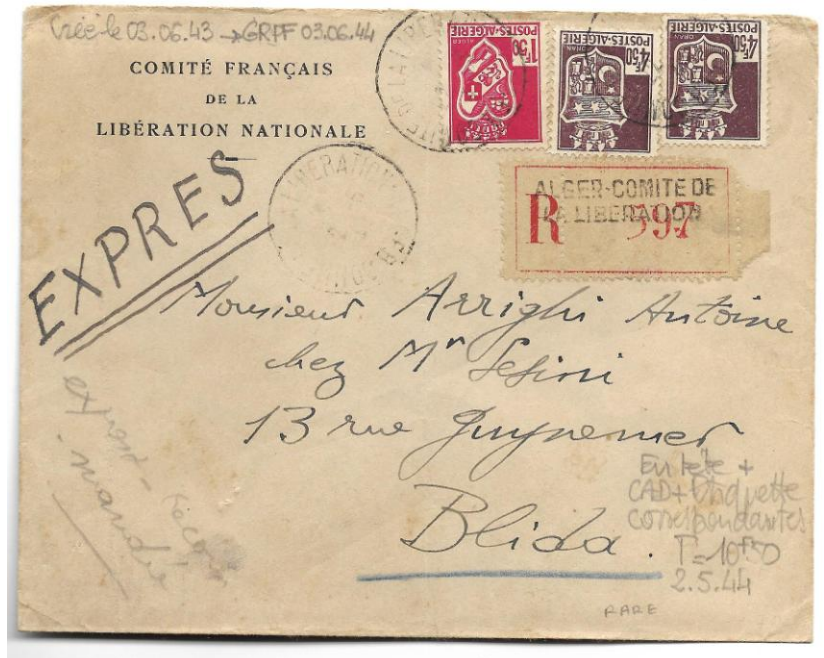 Créé le 03.06.43 → GRPF 03.06.44
COMITÉ FRANÇAIS
DE LA
LIBÉRATION NATIONALE
1F50
POSTES-ALGERIE
ALGER
4F50
POSTES-ALGERIE
ORAN
4F50
POSTES-ALGERIE
ORAN
LIBERATION
ALGER-COMITE DE
LA LIBERATION
R 597
EXPRES
Monsieur Arrighi Antoine
chez Mr Sesini
13 rue Guynemer
Blida.
En tête +
CAD + Etiquette
correspondantes
T = 10F50
2.5.44
RARE